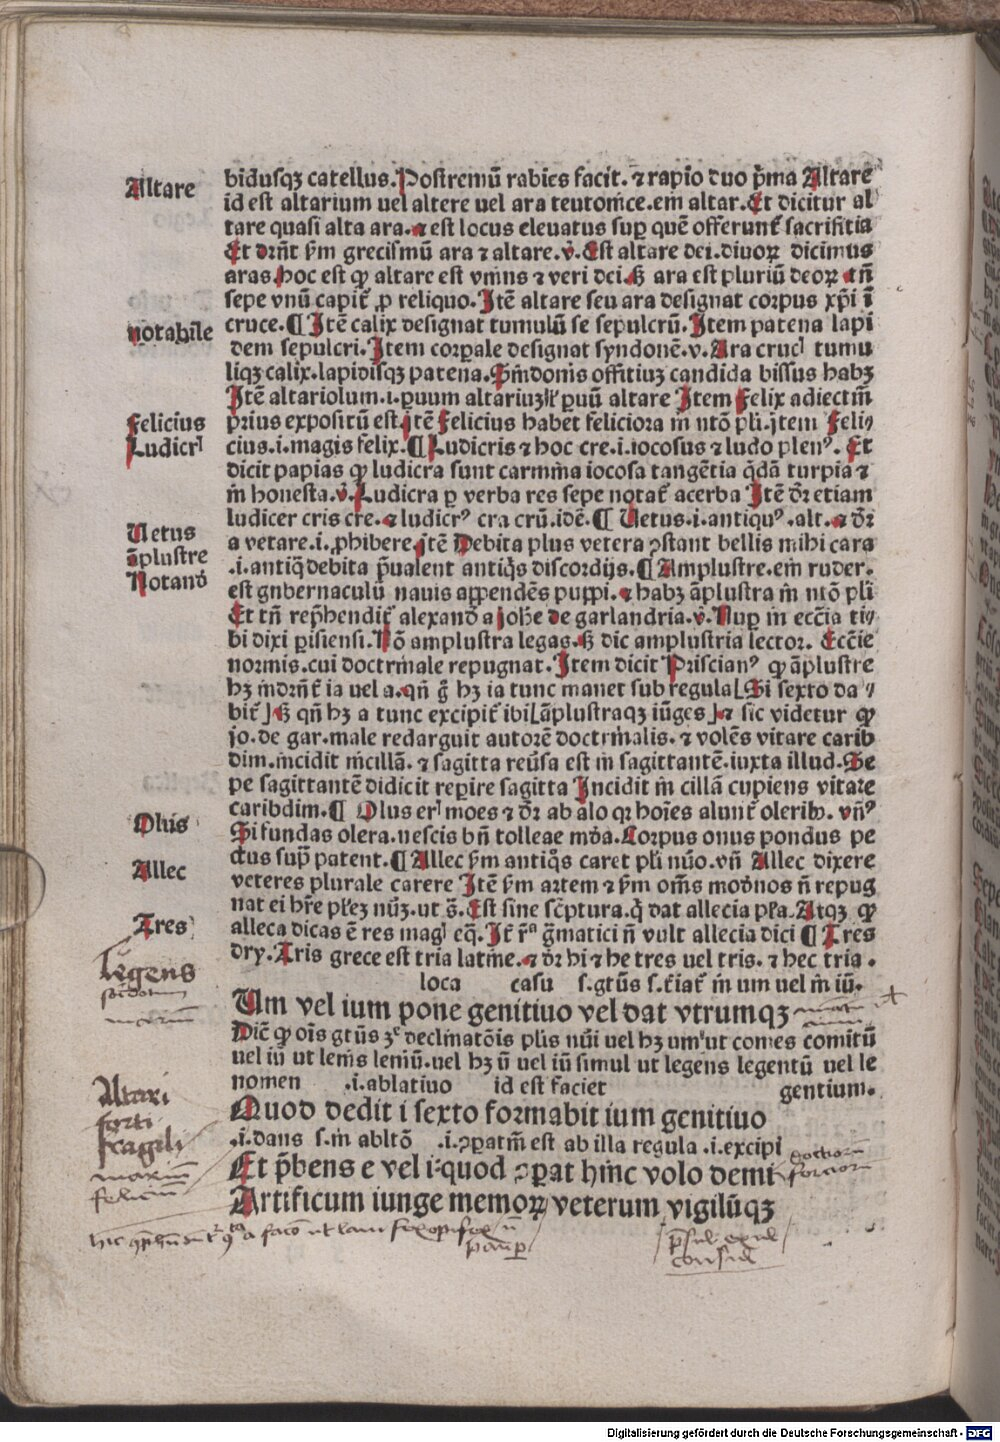 Altare
bidusqꝫ catellus. Postremū rabies facit. ⁊ rapio duo p̄ma Altare
id est altarium uel altere uel ara teutonice. em̄ altar. Et dicitur al
tare quasi alta ara. ⁊ est locus eleuatus sup quē offerunt̄ sacrifitia
Et dr̄nt̄ s̄m grecismū ara ⁊ altare. v̄. Est altare dei. diuoꝝ dicimus
aras. hoc est ꝙ altare est vnius ⁊ veri dei. ara est pluriū deoꝝ tn̄
sepe vnū capit̄ ꝓ reliquo. Itē altare seu ara designat corpus xp̄i ī
notabile
cruce. ¶ Itē calix designat tumulū se sepulcrū. Item patena lapi
dem sepulcri. Item corpale designat syndonē. v. Ara cruc tumu
liqꝫ calix. lapidisqꝫ patena. Sindonis offitiuꝫ candida bissus habꝫ
Itē altariolum .i. puum altariuꝫ puū altare Item Felix adiectiu̅
Felicius
prius expositū est. itē Felicius habet feliciora in ntō pli. item Feli
Ludicr
cius .i. magis felix. ¶ Ludicris ⁊ hoc cre .i. iocosus ⁊ ludo plenꝰ. Et
dicit papias ꝙ ludicra sunt carmina iocosa tangētia q̄dā turpia ⁊
in honesta. v̄. Ludicra p verba res sepe notat̄ acerba Itē dr̄ etiam
ludicer cris cre. ⁊ ludicrꝰ cra crū. idē. ¶ Uetus .i. antiquꝰ. alt. ⁊ dr̄
Uetus
a vetare .i. ꝓhibere. itē Debita plus vetera ꝯstant bellis mihi cara
āplustre
.i. antiq̄ debita p̄ualent antiq̄s discordijs. ¶ Amplustre. em̄ ruder.
Notand
est gnbernaculū nauis appendēs puppi. ⁊ habꝫ āplustra in ntō pli
Et tn̄ rep̄hendit̄ alexand a johe de garlandria. v̄. Nup in eccīa ti
bi dixi pisiensi. Nō amplustra legas. dic amplustria lector. Eccēie
normis. cui doctrinale repugnat. Item dicit Priscianꝰ ꝙ āplustre
hꝫ indrn̄t̄ ia uel a. qn̄ hꝫ ia tunc manet sub regula [Si sexto da
bit̄ ] qn̄ hꝫ a tunc excipit̄ ibi [āplustraqꝫ iūges] ⁊ sic videtur ꝙ
jo. de gar. male redarguit autorē doctrinalis. ⁊ volēs vitare carib
dim. incidit in cillā. ⁊ sagitta reūsa est in sagittantē. iuxta illud. Se
pe sagittantē didicit repire sagitta Incidit in cillā cupiens vitare
caribdim. ¶ Olus er moes ⁊ dr̄ ab alo qꝛ hoīes alunt̄ olerib. vn̄ꝰ
Olus
Si fundas olera. nescis bn̄ tolleae mōa. Corpus onus pondus pe
ctus sup patent. ¶ Allec s̄m antiq̄s caret pli nūo. vn̄ Allec dixere
Allec
veteres plurale carere Itē s̄m artem ⁊ s̄m om̄s modnos n̄ repug
nat ei hr̄e nūꝫ. ut s̄. Est sine sc̄ptura. q̄ dat allecia pl̄a. Atqꝫ ꝙ
Tres
alleca dicas ē res mag eq̄. It̄ ḡmatici n̄ vult allecia dici ¶ Tres
dry. Tris grece est tria latine. ⁊ dr̄ hi ⁊ he tres uel tris. ⁊ hec tria.
legens
loca casu s. gtūs in um uel in iū.
Um vel ium pone genitiuo vel dat vtrumqꝫ
Dic̄ ꝙ oīs gtūs declinatōis plis nūi uel hꝫ um ut comes comitū
uel iū ut lenis leniū. uel hꝫ ū uel iū simul ut legens legentū uel le
nomen .i. ablatiuo id est faciet gentium.
Quod dedit i sexto formabit ium genitiuo
Altari
forti
fragili
.i. dans s. in abltō .i. ꝯpatiu̅ est ab illa regula .i. excipi
Et p̄bens e vel i quod ꝯpat hinc volo demi
Artificum iunge memoꝝ veterum vigilūqꝫ
p̄sul exul
consul
Digitalisierung gefördert durch die Deutsche Forschungsgemeinschaft - DFG